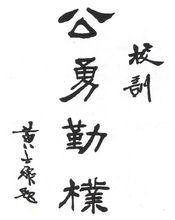 校訓
公勇勤樸
黃士衡題